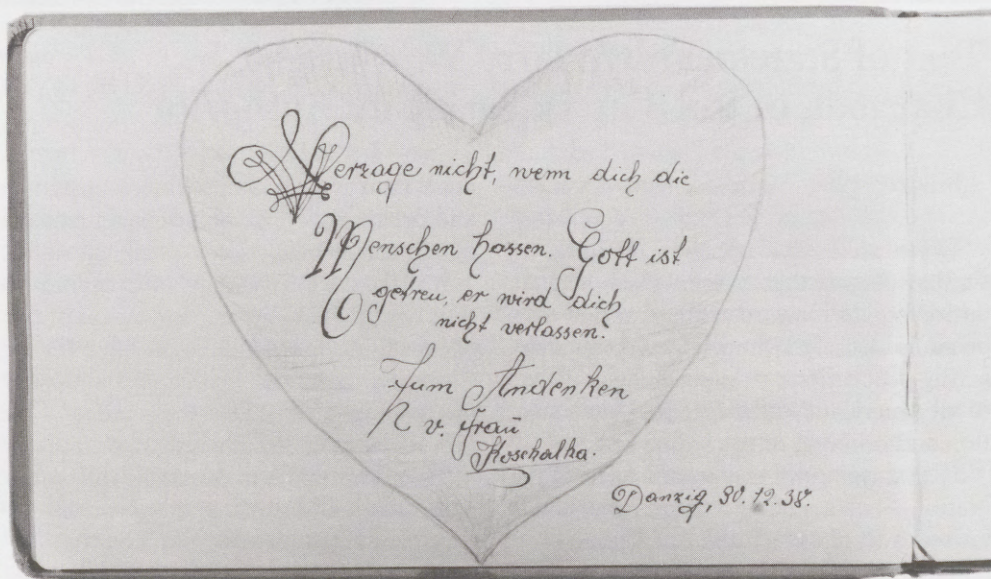 Verzage nicht, wenn dich die
Menschen hassen. Gott ist
getreu, er wird dich
nicht verlassen.
Zum Andenken
v. Frau
Koschalka.
Danzig, 30.12.38.